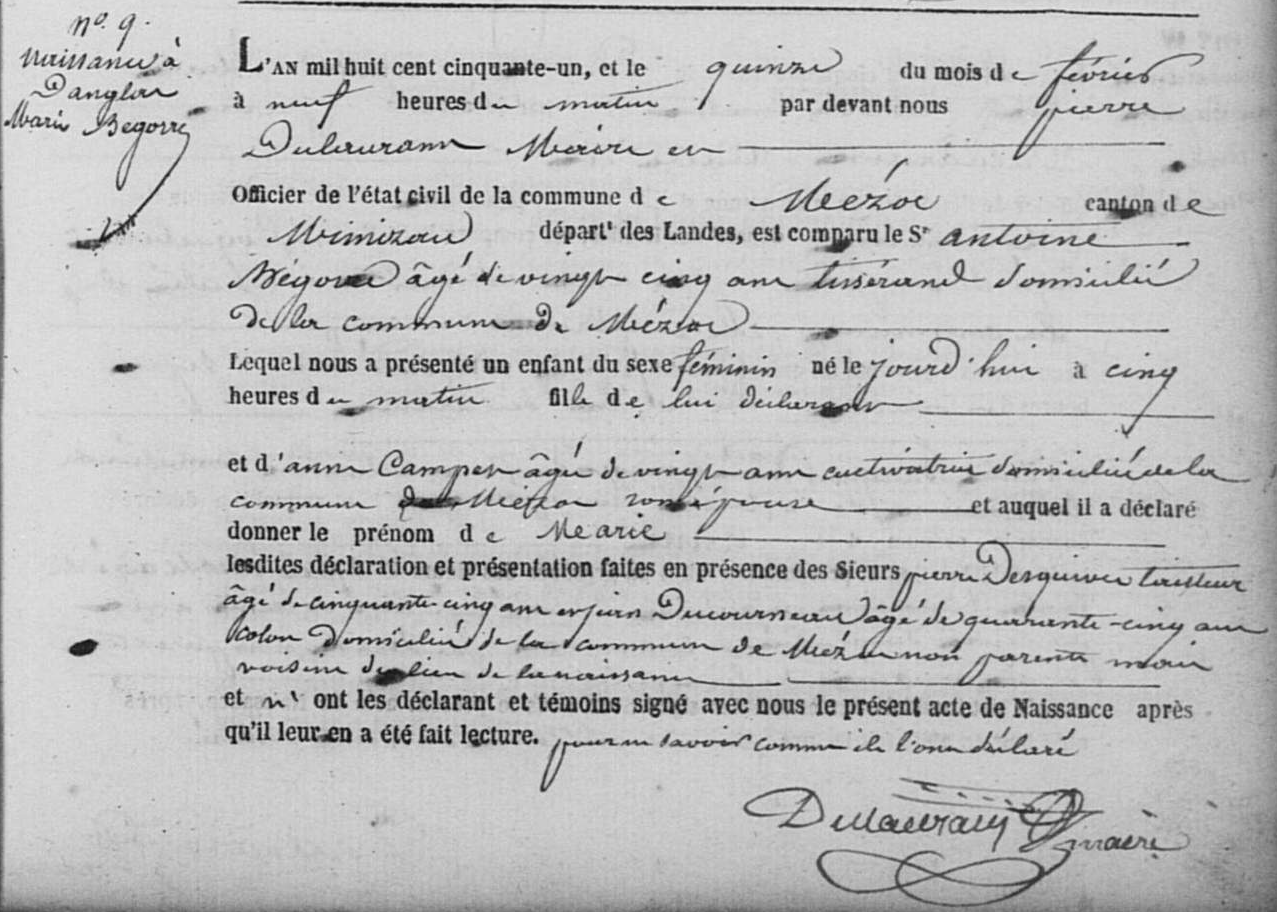 nº. 9.
naissance à
Danglon
Marie Bégorre
L'AN mil huit cent cinquante-un, et le quinze du mois de février
à neuf heures du matin par devant nous pierre
Dulaurans Maire en
Officier de l'état civil de la commune de Méézos canton de
Mimizan départt des Landes, est comparu le Sr antoine
Bégorre âgé de vingt cinq ans tisserand domicilié
de la commune de Mézos
Lequel nous a présenté un enfant du sexe féminin né le jourd'hui à cinq
heures du matin fille de lui déclarant
et d'anne Campet âgée de vingt ans cultivatrice domiciliée de la
commune de Mézos son épouse et auquel il a déclaré
donner le prénom de Marie
lesdites déclaration et présentation faites en présence des Sieurs pierre Desquives
âgé de cinquante-cinq ans et jean Ducourneau âgé de quarante-cinq ans
colon domiciliés de la commune de Mézos non parents mais
voisins du lieu de la naissance
et n' ont les déclarant et témoins signé avec nous le présent acte de Naissance après
qu'il leur en a été fait lecture. pour ne savoir comme ils l'ont déclaré
Dulaurans maire